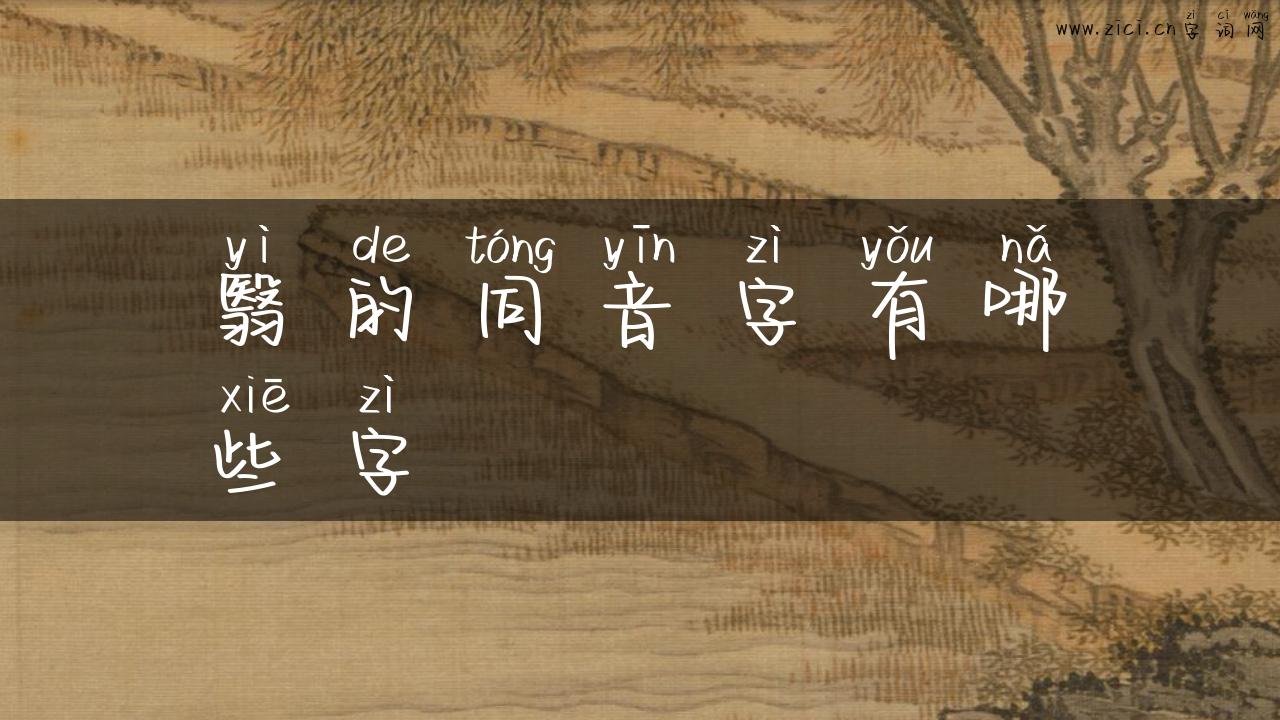 zì cí wǎng
www.zici.cn字词网
yì de tóng yīn zì yǒu nǎ
翳的同音字有哪
xiē zì
些字